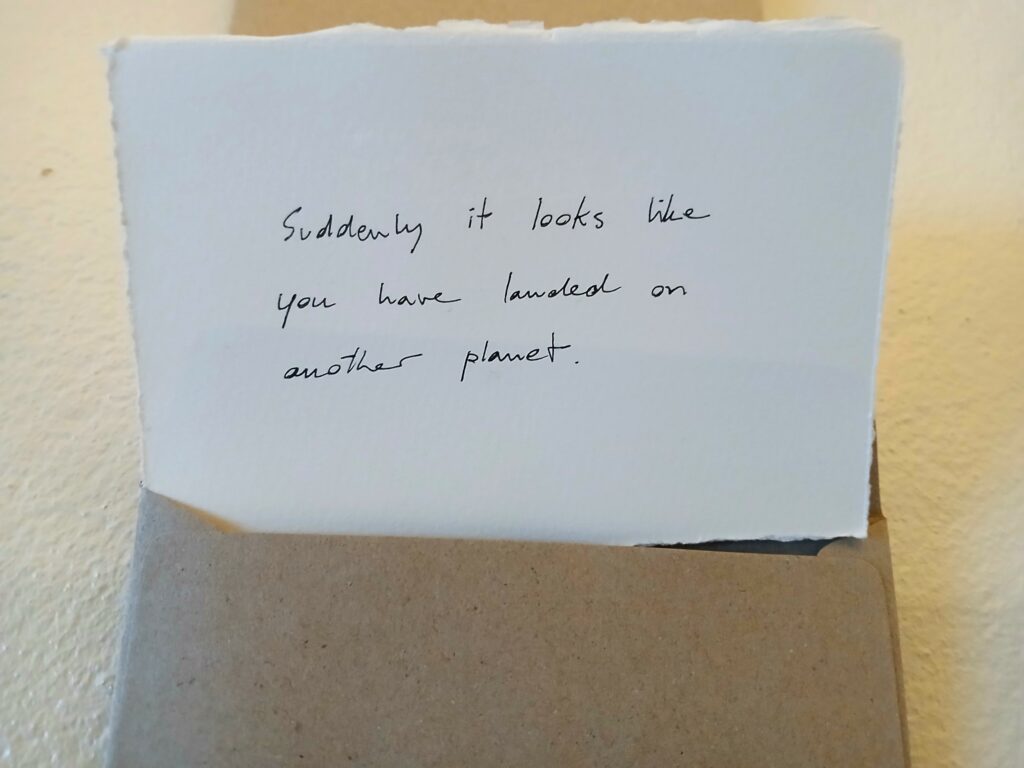 Suddenly it looks like
you have landed on
another planet.